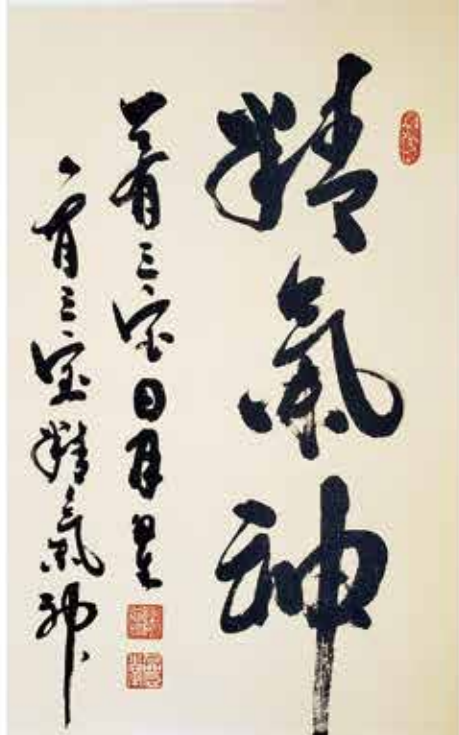 精氣神
天有三宝日月星
人有三宝精氣神